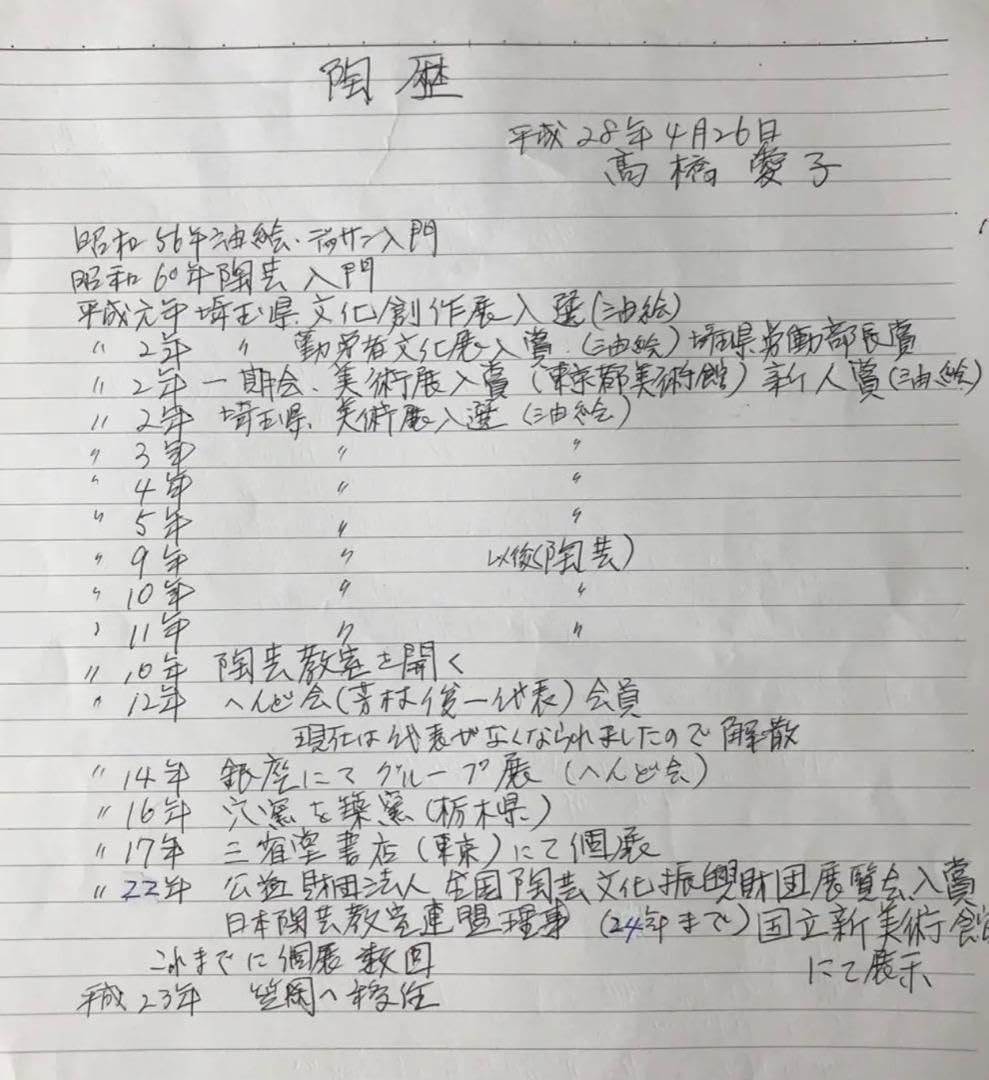 陶歴
平成28年4月26日
高橋愛子
昭和56年油絵・デッサン入門
昭和60年陶芸入門
平成元年埼玉県文化創作展入選(油絵)
〃2年 〃 勤労者文化展入賞(油絵)埼玉県労働部長賞
〃2年一期会美術展入賞(東京都美術館)新人賞(油絵)
〃2年 埼玉県美術展入選(油絵)
〃3年 〃 〃
〃4年 〃 〃
〃5年 〃 〃
〃9年 〃 以後(陶芸)
〃10年 〃 〃
〃11年 〃 〃
〃10年 陶芸教室を開く
〃12年 へんど会(芳村俊一代表)会員
現在は代表がなくなられましたので解散
〃14年 銀座にてグループ展(へんど会)
〃16年 穴窯を築窯(栃木県)
〃17年 三省堂書店(東京)にて個展
〃22年 公益財団法人全国陶芸文化振興財団展覧会入賞
日本陶芸教室連盟理事(24年まで)国立新美術館
にて展示
これまでに個展数回
平成23年 笠間へ移住